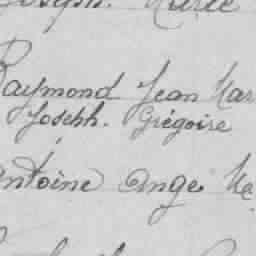 Joseph. Marie
Raymond Jean Mar
Joseph. Grégoire
Antoine Ange